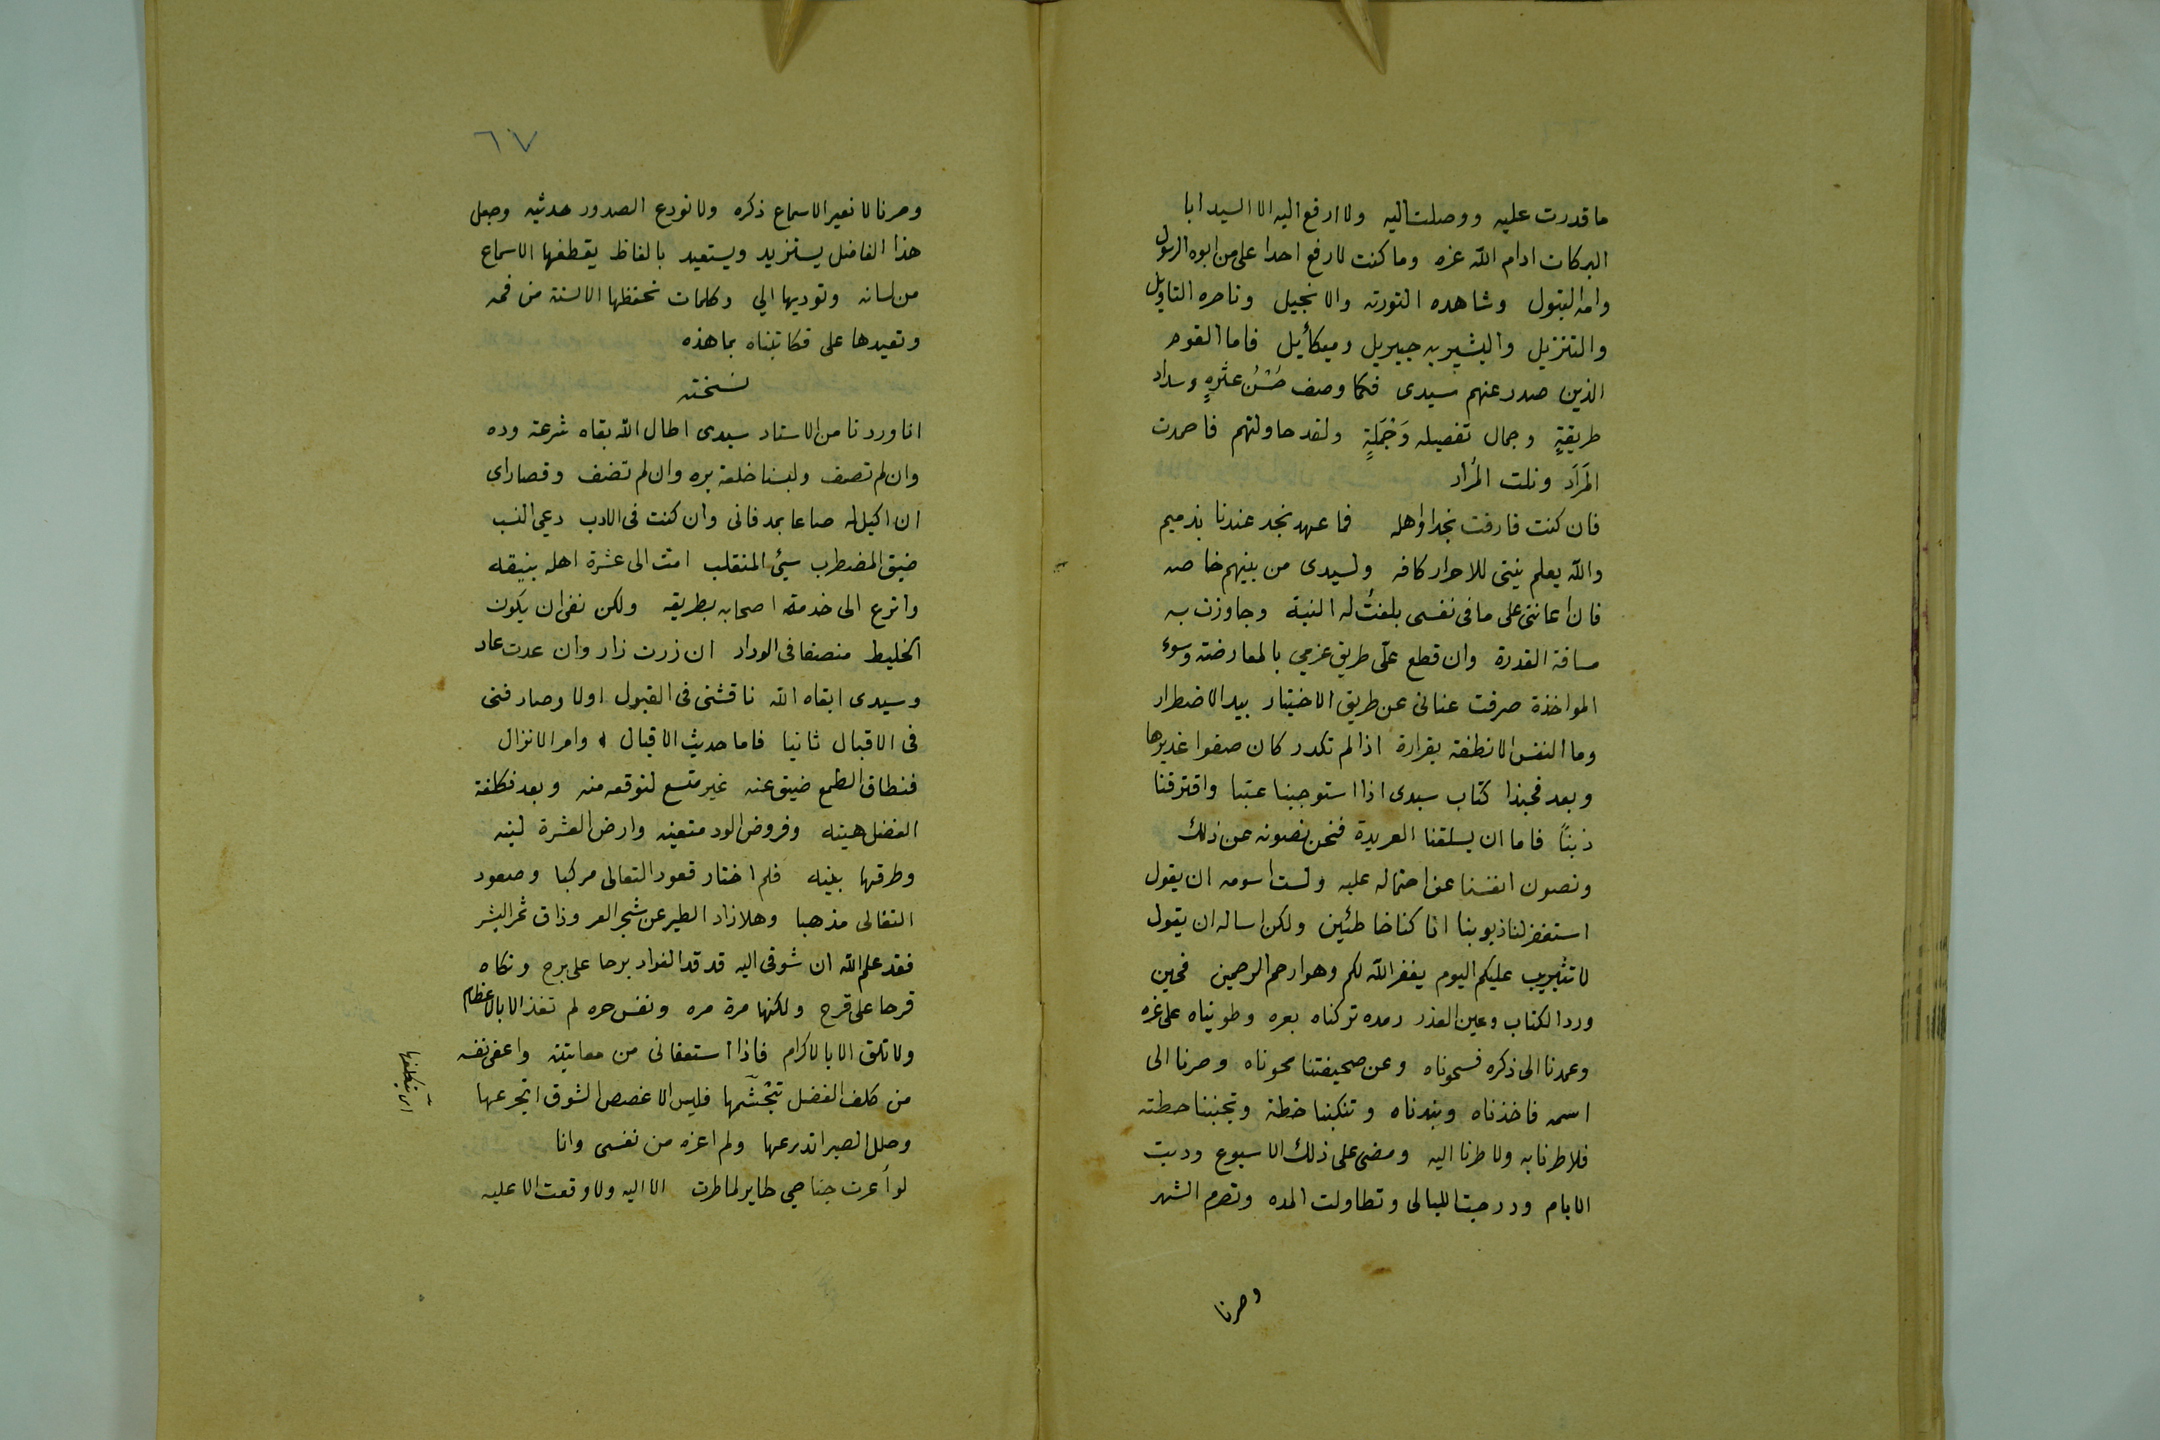 ما قدرت عليه ووصلت اليه ولا ارفع اليه الا السيد ابا
البركات ادام الله عزه وما كنت لارفع احدا على من ابوه الرسول
وامه البتول وشاهده التورته والانجيل وناصره التاويل
والتنزيل والبشير به جبريل وميكائيل فاما القوم
الذين صدر عنهم سيدى فكما وصف حُسْنُ عشرهٍ وسداد
طريقةٍ وجمال تفصيله وَجُمَلةٍ ولقد حاولتهم فاحمدت
المَرَادَ ونلت المُراد
فان كنت فارقت نجدا واهله فما عهد نجد عندنا بذميم
والله يعلم نيتى للاحرار كافه ولسيدى من بينهم خاصه
فان اعانتى على ما فى نفسى بلغتُ له النية وجاوزت به
مسافة القدرة وان قطع علّى طريق عزمي بالمعارضته وسوء
المواخذة صرفت عنانى عن طريق الاختيار بيد الاضطرار
وما النفس الا نطفة بقرارة اذا لم تكدر كان صفوا غديرها
وبعد فحبذا كتاب سيدى اذا استوجبنا عتبا واقترفنا
ذنبًا فاما ان يسلفنا العربدة فنحن نصونه عن ذلك
ونصون انفسنا عن احتماله عليه ولست اسومه ان يقول
استغفر لنا ذنوبنا انا كنا خاطئين ولكن اساله ان يقول
لا تثريب عليكم اليوم يغفر الله لكم وهو ارحم الرحمين فحين
ورد الكتاب وعين العذر رمده تركناه بعره وطويناه على غره
وعمدنا الى ذكره فسحوناه وعن صحيفتنا محوناه وصرنا الى
اسمه فاخذناه ونبدناه وتنكبنا خطة وتجنبنا حطته
فلا طرنا به ولا طرنا اليه ومضى على ذلك الاسبوع ودبت
الايام ودرجت الليالى وتطاولت المده وتصرم الشهر
وصرنا
٦٧
وصرنا لا نعير الاسماع ذكره ولا نودع الصدور حديثه وجعل
هذا الفاضل يستزيد ويستعيد بالفاظ يقطفها الاسماع
من لسانه وتوديها الي وكلمات تحفظها الالسنة من فمه
وتعيدها على فكاتبناه بما هذه
نسخته
انا وردنا من الاستاد سيدى اطال الله بقاه شرعة وده
وان لم تصف ولبسنا خلعة بره وان لم تضف وقصاراي
ان اكيل له صاعا بمد فانى وان كنت فى الادب دعي النسب
ضيق المضطرب سيئ المنقلب امت الى عشرة اهله بنيقه
وانزع الى خدمة اصحابه بطريقه ولكن نفى ان يكون
الخليط منصفا فى الوداد ان زرت زار وان عدت عاد
وسيدى ابقاه الله ناقشنى فى القبول اولا وصارفنى
فى الاقبال ثانيا فاما حديث الاقبال وامر الانزال
فنطاق الطمع ضيق عنه غير متسع لتوقعه منه وبعد فكلفة
الفضل هينه وفروض الود متعينه وارض العشرة لينه
وطرقها بينه فلم اختار قعود التعالى مركبا وصعود
التغالى مذهبا وهلا زاد الطير عن شجر العر وذاق ثمر البشر
فقد علم الله ان شوقى اليه قد قد الفواد برحا على برح ونكاه
قرحا على قرح ولكنها مرة مره ونفس حره لم تغذ الا بالاعظام
ولا تلق الا بالاكرام فاذا استعفانى من معاتبته واعفى نفسه
من كلف الفضل تتجشّمها فليس الا غصص الشوق اتجرعها
وحلل الصبر اتدرعها ولم اعزه من نفسى وانا
لو اُعرت جناحي طاير لما طرت الا اليه ولا وقعت الا عليه
اى يتكلفها